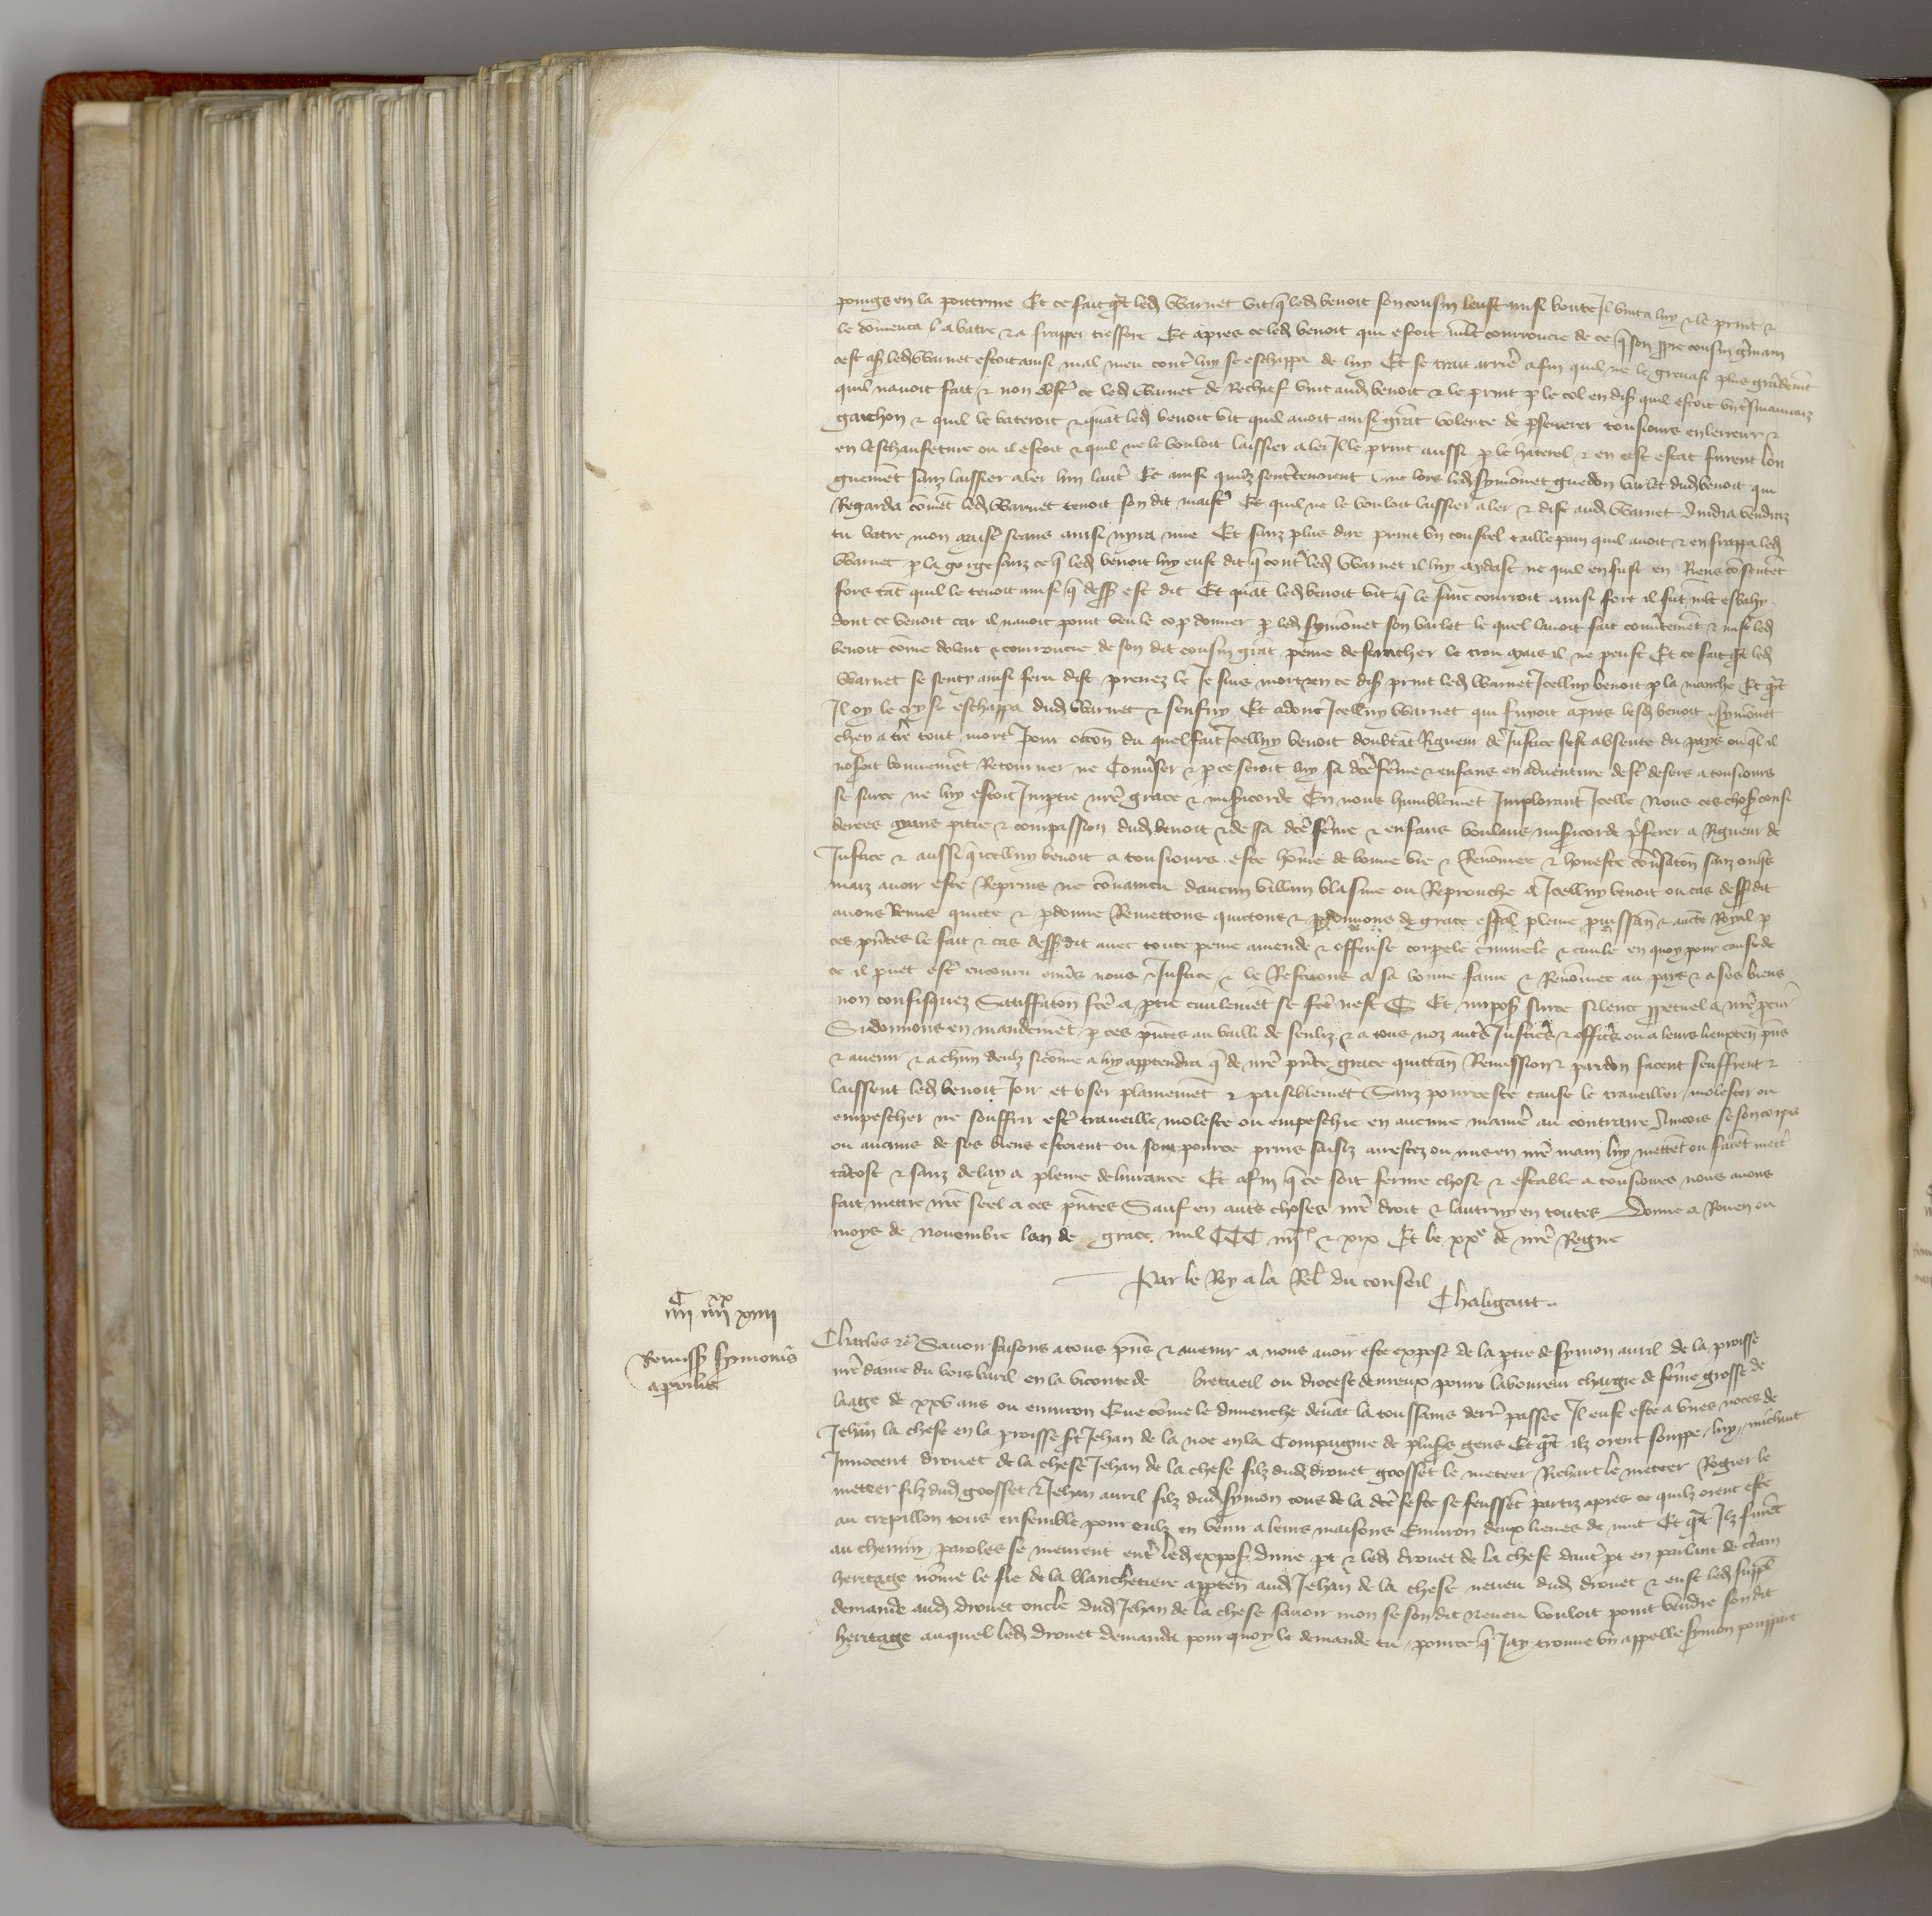 poings en la poictrine Et ce fait qnt led Warnet vit q led benoit son cousin leust ainsi boute Il vint a luy & le print &
le comenca l a batre & a frapper tresfort Et apres ce led benoit qui estoit mlt courroucie de ce q son ppre cousin gmain
cest ass led Warnet estoit ainsi mal meu cont luy se eschappa de luy Et se trait arrie afin quil ne le grevast plus grademt
quil navoit fait & non obst ce led Warnet de Rechief vint aud benoit & le print p le col en dis quil estoit un tsmauvaiz
garchon & quil le bateroit & quat led benoit vit quil avoit ainsi grat volente de pseverer tousiours en lerreur &
en leschaufeture ou il estoit & quil ne le vouloit laissier aler Il le print aussi p le haterel & en cest estat furent lon
guemet sanz laissier aler lun laut Et ainsi quilz sentretenoient vint lors led Symonnet guedon varlet dud benoit qui
Regarda comet led Warnet tenoit son dit maist Et quil ne le vouloit laissier aler & dist aud Warnet vendraz
tu batre mon maist ceans ainsi nyra mie Et sanz plus dire print un coustel taillepain quil avoit & en frappa led
Warnet p la gorge sanz ce q led benoit luy eust dit q cont led Warnet il luy aydast ne quil en fust en Riens consentet
fors tat quil le tenoit ainsi q dess est dit Et quat led benoit vit q le sanc couroit ainsi fort il fut mlt esbahy
dont ce venoit car il navoit point veu le cop donner p led Symonnet son varlet le quel lavoit fait couvtemet & mist led
benoit come dolent & courroucie de son dit cousin grat peine destancher le trou mais il ne peust Et ce fait qnt led
Warnet se senty ainsi feru dist prenez le Je suis mort & en ce dis print led Warnet Icelluy benoit p la manche Et qnt
Il oy le cry si eschappa dud Warnet & senfuy Et adonc Icelluy Warnet qui fuyoit apres lesd benoit & Symonnet
chey a tre tout mort Pour occon du quel fait Icelluy benoit doubtat Rigueur de Justice sest absente du pays ou ql il
noseroit bonnemet Retourner ne Conviser & p ce seroit luy sa dce feme & enfans en adventure dest desers a tousiours
se surce ne luy estoit Imptie nre grace & misicorde En nous humblemet Implorant Icelle Nous ces choss consi
derees ayans pitie & compassion dud benoit & de sa dce feme & enfans voulans misicorde pferer a Rigueur de
Justice & aussi q icelluy benoit a tousiours este home de bonne vie & Renomee & honeste convsaton sanz onques
maiz avoir este Reprins ne convaincu daucun villain blasme ou Reprouche A Icelluy benoit ou cas dessdit
avons Remis quitte & pdonne Remettons quittons & pdonnons de grace espal pleine puissan & aucte Royal p
ces pntes le fait & cas dessdit avec toute peine amende & offense corpele criminele & civile en quoy pour cause de
ce il puet est encouru envs nous & Justice & le Restituons a sa bonne fame & Renomee au pays & a ses biens
non confisquez Satiffaton fce a ptie civilemet se fce nest Et imposs surce silence ppetuel a nre pcur
Si donnons en mandemet p ces pntes au bailli de senliz & a tous noz auts Justics & offics ou a leurs lieuxten pns
& avenir & a chun deulz sicome a luy apptendra q de nre pnte grace quittan Remission & pardon facent seuffrent &
laissent led benoit Joir et user plainemet & paisiblemet Sanz pour ceste cause le traveiller molester ou
empescher ne souffrir est traveille moleste ou empeschie en aucune manie au contraire Aincois se son corps
ou aucuns de ses biens estoient ou sont pource prins saisiz arrestez ou mis en nre main luy mettet ou facet mett
tatost & sanz delay a pleine delivrance Et afin q ce soit ferme chose & estable a tousiours nous avons
fait mettre nre seel a ces pntes Sauf en auts choses nre droit & lautruy en toutes Donne a Rouen ou
moys de Novembre lan de grace mil CCC iiii^xx & xix Et le xx^e de nre Regne
Par le Roy a la Rel du conseil
Chaligaut
iiii^C iiii^xx xiiii
Remiss Symonis
aprilis
Charles &c Savoir faisons a tous pns & avenir a nous avoir este expose de la ptie de Symon avril de la proisse
nre dame du bois baril en la viconte de bretueil ou diocese devreux povre laboureur chargie de feme grosse de
laage de xxv ans ou environ Que come le dimenche devat la toussains derr passee Il eust este a unes noces de
Jehan la chese en la proisse st Jehan de la noe en la Compaignie de pluss gens Et qnt ilz orent souppe luy michaut
Innocent drouet de la chese Jehan de la chese filz dud drouet gosset le metter Richart le metter Rogier le
metter filz dud gosset & Jehan avril filz dud Symon tous de la dce feste se feusset partiz apres ce quilz orent este
au crepillon tous ensemble pour eulz en venir a leurs maisons Environ deux lieues de nuit Et qnt Ilz furet
au chemin paroles se meurent ent led exposs dune pt & led drouet de la chese daut pt en parlant de ctain
heritage nome le fie de la blanchetiere apparten aud Jehan de la chese neveu dud drouet & eust led suppl
demande aud drouet oncle dud Jehan de la chese savoir mon se son dit neveu vouloit point vendre son dit
heritage auquel led drouet demanda pour quoy le demande tu pource q Jay trouve un appelle Symon